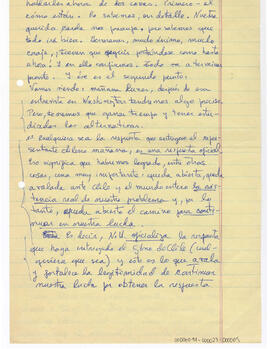 hablarles ahora de dos cosas. Primero - el
cómo están. Lo sabemos, en detalle. Nuestra
querida
que todo irá bien. Hermanas, mucho ánimo, mucho
coraje, tienen que seguir portándose como hasta
ahora! Y en ello confiamos. Todo va a terminar
pronto. Y ése es el segundo punto.
Vamos viendo: mañana lunes, después de su
entrevista en Washington tendremos algo preciso.
Pero, tenemos que ganar tiempo y tener
las alternativas.
Cualquiera sea la respuesta que entregue el repre-
sentante chileno mañana, es una respuesta oficial.
Eso significa que habremos logrado, entre otras
cosas, una muy importante: queda abierta, queda
avalada ante Chile y el mundo entero la exis-
tencia real de nuestro problema y, por lo
tanto, queda abierto el camino para conti-
nuar en nuestra lucha.
Es decir, N.U. oficializa la respuesta
que haya entregado el Gbno de Chile (cual-
quiera que sea) y esto es lo que avala
y fortalece la legitimidad de continuar
nuestra lucha por obtener la respuesta